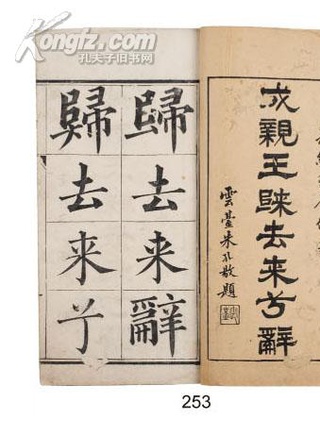 Kongfz.com
孔夫子旧书网
成親王歸去来兮辭
雲 朱孔敭題
歸去来辭
歸去来兮
253